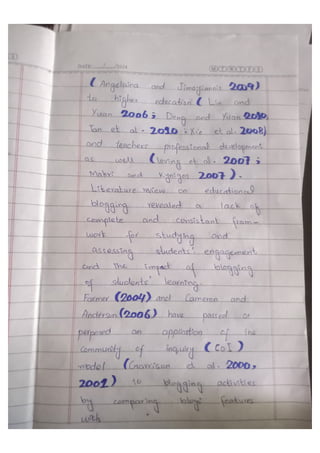 DATE / /
M T W T F S S
( Angelaina and Jimoyiannis 2009)
to higher education ( Lin and
Yuan 2006 ; Deng and Yuan 2010,
Tan et al. 2010 ; Xie et al. 2008)
and teachers professional development
as well (Loving et al. 2007 ;
Makri and Kynigos 2007 ).
Literature review on educational
blogging revealed a lack of
complete and consistant fram-
work for studying and
assessing students' engagement
and The impact of blogging
of students' learning.
Farmer (2004) and Cameron and
Anderson (2006) have passed or
perpound an application of the
Community of inquiry ( CoI )
model ( Garrison et al. 2000,
2001 ) to blogging activities
by comparing blogs' features
with